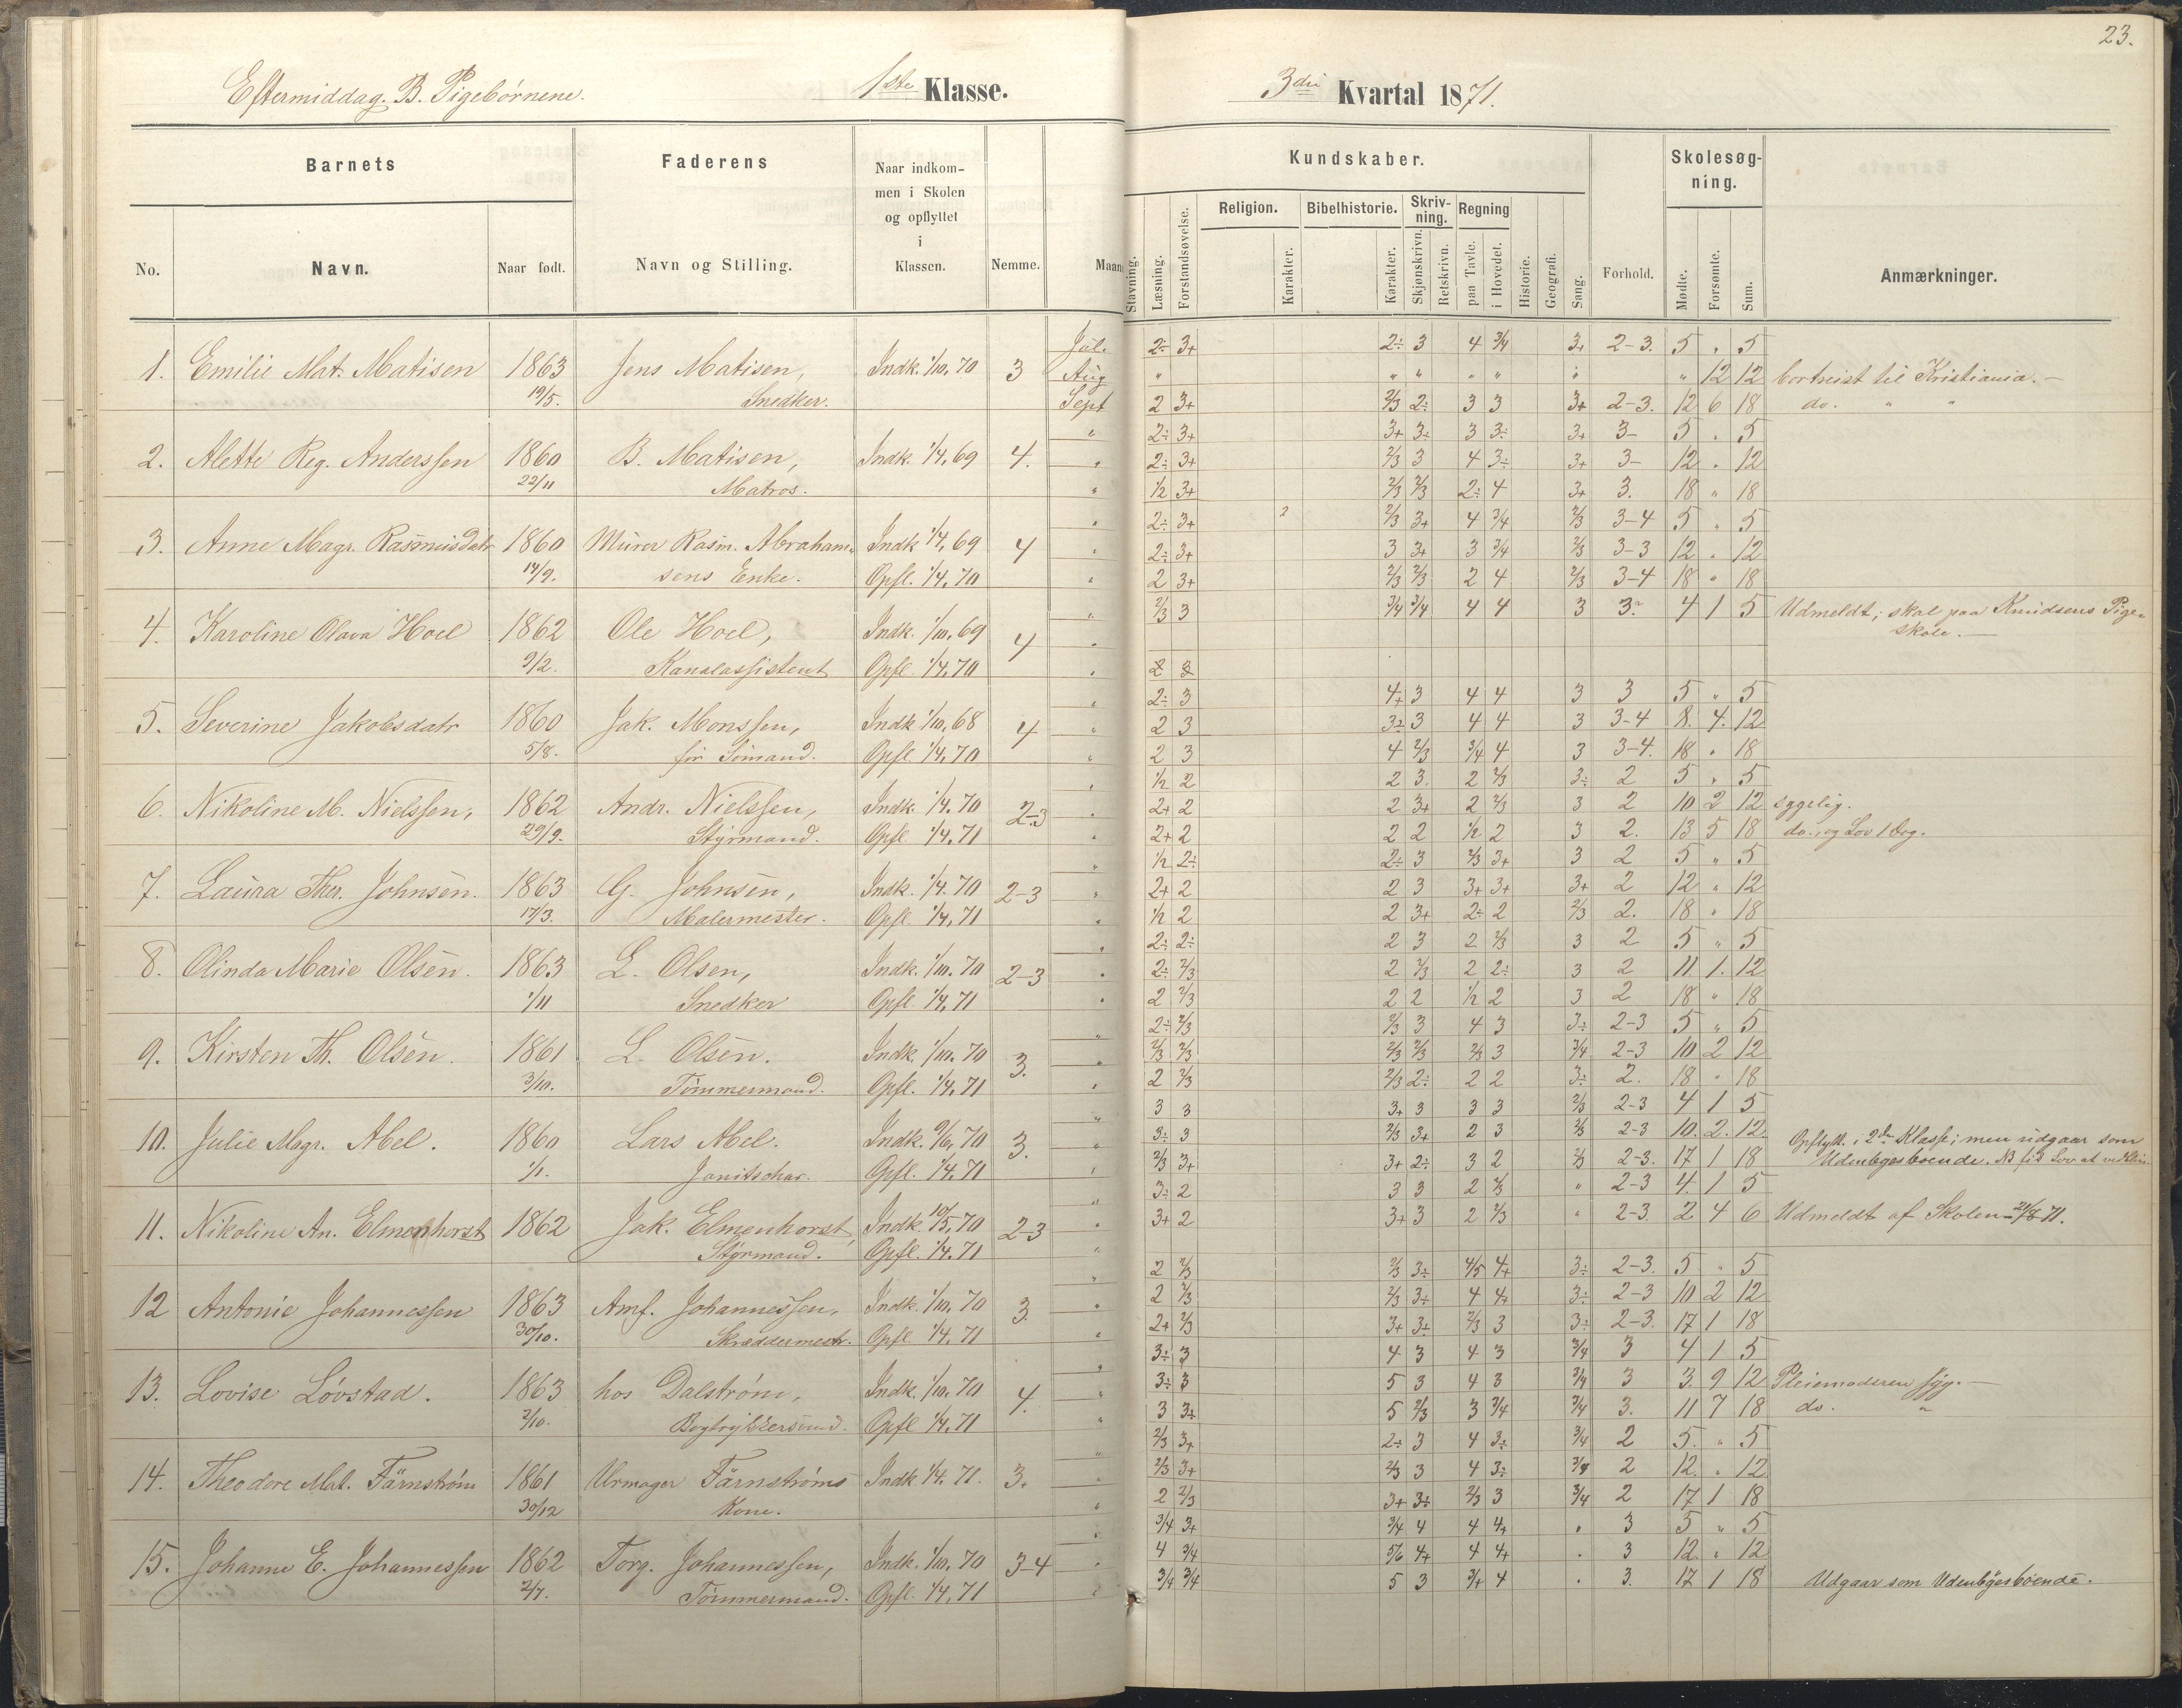 23.
Eftermiddag. B. Pigebørnene. 1ste Klasse. 3die Kvartal 1871.
Barnets Faderens Naar indkommen i Skolen og opflyttet i Klassen. Nemme. Maan Kundskaber. Skolesøgning. Anmærkninger.
No. Navn. Naar født. Navn og Stilling. Stavning. Læsning. Forstandsøvelse. Religion. Karakter. Bibelhistorie. Karakter. Skrivning. Skjønskrivn. Retskrivn. Regning paa Tavle. i Hovedet. Historie. Geografi. Sang. Forhold. Mødte. Forsømte. Sum.
Jul. 2÷ 3+ 2÷ 3 4 3/4 3+ 2-3. 5 " 5
1. Emilie Mat. Matisen 1863 Jens Matisen, Indk. 1/10, 70 3 Aug " " " " " " " 12 12 bortreist til Kristiania.—
19/5. Snedker. Sept 2 3+ 2/3 2÷ 3 3 3+ 2-3. 12 6 18 do. " "
" 2÷ 3+ 3+ 3÷ 3 3÷ 3+ 3- 5 " 5
2. Alette Reg. Anderssen 1860 B. Matisen, Indk. 1/4, 69 4. " 2÷ 3+ 2/3 3 4 3÷ 3+ 3- 12 " 12
22/11 Matros. " 1/2 3+ 2/3 2/3 2÷ 4 3+ 3. 18 " 18
" 2÷ 3+ 2 2/3 3+ 4 3/4 2/3 3-4 5 " 5
3. Anne Magr. Rasmusdatr 1860 Murer Rasm. Abraham- Indk 1/4, 69 4 " 2÷ 3+ 3 3+ 3 3/4 2/3 3-3 12 " 12
14/9. sens Enke. Opfl. 1/4, 70 " 2 3+ 2/3 2/3 2 4 2/3 3-4 18 " 18
" 2/3 3 3/4 3/4 4 4 3 3- 4 1 5 Udmeldt; skal paa Knudsens Pige-
4. Karoline Olava Hoel 1862 Ole Hoel, Indk. 1/10, 69 4 " skole.—
9/2. Kanalassistent Opfl. 1/4, 70 " 2 3
" 2÷ 3 4+ 3 4 4 3 3 5 " 5
5. Severine Jakobsdatr 1860 Jak. Monssen, Indk 1/10, 68 4 " 2 3 3÷ 3 4 4 3 3-4 8. 4. 12
5/8. før Sömand. Opfl. 1/4, 70 " 2 3 4 2/3 3/4 4 3 3-4. 18 " 18
" 1/2 2 2 3. 2 2/3 3÷ 2 5 " 5
6. Nikoline M. Nielssen, 1862 Andr. Nielssen, Indk. 1/4. 70 2-3 " 2+ 2 2 3+ 2 2/3 3 2 10 2 12 sygelig.
29/9. Styrmand. Opfl. 1/4, 71 " 2+ 2 2 2 1/2 2 3 2. 13 5 18 do., og Lov 1 Dag.
" 1/2 2÷ 2÷ 3 2/3 3+ 3 2 5 " 5
7. Laura Thr. Johnsen. 1863 G. Johnsen, Indk. 1/4. 70 2-3 " 2+ 2 2 3 3+ 3+ 3+ 2 12 " 12
17/3. Malermester. Opfl. 1/4, 71 " 1/2 2 2 3+ 2÷ 2 2/3 2. 18 " 18
" 2÷ 2÷ 2 3 2 2/3 3 2 5 " 5
8. Olinda Marie Olsen. 1863 L. Olsen, Indk. 1/10. 70 2-3 " 2÷ 2/3 2 2/3 2 2÷ 3 2 11 1. 12
1/11 Snedker Opfl. 1/4, 71 " 2 2/3 2 2 1/2 2 3 2 18 " 18
" 2÷ 2/3 2/3 3 4 3 3÷ 2-3 5 " 5
9. Kirsten Th. Olsen. 1861 L. Olsen. Indk. 1/10. 70 3. " 2/3 2/3 2/3 2/3 2/3 3 3/4 2-3 10 2 12
3/10. Tömmermand. Opfl. 1/4, 71 " 2 2/3 2/3 2÷ 2 2 3÷ 2. 18 " 18
" 3 3 3+ 3 3 3 2/3 2-3 4 1 5
10. Julie Magr. Abel. 1860 Lars Abel. Indk. 9/6, 70 3. " 3÷ 3 2/3 3+ 2 3 2/3 2-3 10. 2. 12. Opflytt. i 2den Klasse; men udgaar som
1/1. Janitschar. Opfl. 1/4, 71 " 2/3 3+ 3+ 2÷ 3 2 2/3 2-3. 17 1 18 Udenbyesboende. NB fik Lov at
" 3÷ 2 3 3 2 2/3 " 2-3 4. 1 5
11. Nikoline An. Elmenhorst 1862 Jak. Elmenhorst, Indk. 10/5, 70 2-3 " 3+ 2 3+ 3 2 2/3 " 2-3. 2 4 6 Udmeldt af Skolen 21/8 71.
Styrmand. Opfl. 1/4. 71 "
" 2 2/3 2/3 3÷ 4/5 4+ 3÷ 2-3. 5 " 5
12 Antonie Johannessen 1863 Amf. Johannessen, Indk. 1/10, 70 3. " 2 2/3 2/3 3÷ 4 4+ 3÷ 2-3 10 2 12
30/10. Skræddermestr. Opfl 1/4. 71 " 2+ 2/3 3+ 3÷ 2/3 3 3÷ 2-3. 17 1 18
" 3÷ 3 4 3 4 3 3/4 3 4 1 5
13. Lovise Lövstad. 1863 hos Dalström, Indk. 1/10. 70 4. " 3÷ 3 5 3 4 3 3/4 3 3. 9 12 Pleiemoderen syg.—
2/10. Bogtrykkersvend. Opfl 1/4. 71 " 3 3+ 5 2/3 3 3/4 3/4 3. 11 7 18 do. "
" 2/3 3+ 2÷ 3 4 3÷ 3/4 2 5. " 5
14. Theodore Mat. Färnström 1861 Urmager Färnströms Indk. 1/4. 71. 3. " 2/3 3+ 2/3 3 4 3÷ 3/4 2 12. " 12
30/12 Kone. " 2 2/3 3+ 3÷ 2/3 3 3/4 2 17 1 18
" 3/4 3+ 3/4 4 4 4+ " 3 5 " 5
15. Johanne E. Johannessen 1862 Torg. Johannessen, Indk. 1/10, 70 3-4 " 4 3/4 5/6 4+ 4 4+ " 3 12. " 12
2/7. Tömmermand. Opfl. 1/4, 71 " 3/4 3/4 5 3 3/4 4 " 3. 17 1 18 Udgaar som Udenbyesboende.